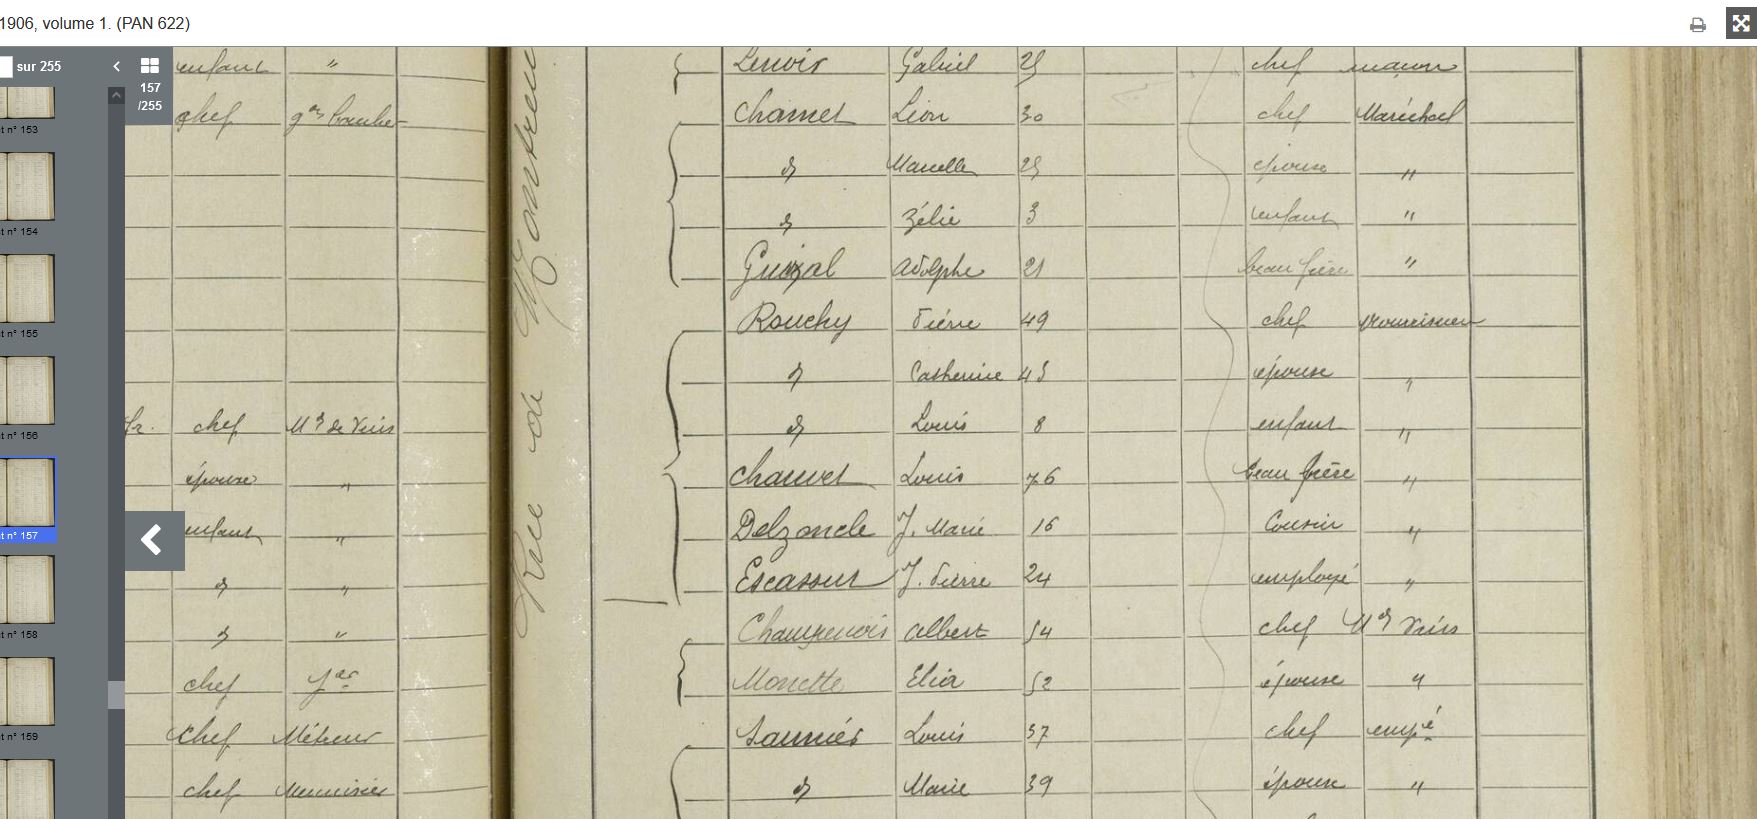 1906, volume 1. (PAN 622)
sur 255
157
/255
t n° 153
t n° 154
t n° 155
t n° 156
t n° 157
t n° 158
t n° 159
enfant "
chef gon boucher
fr. chef Md de Vins
épouse "
enfant "
d "
d "
chef Jer
chef Métreur
chef Menuisier
Rue de Montreuil
Lenoir Gabriel 25 chef maçon
Chamet Léon 30 chef Maréchal
d Marcelle 25 épouse "
d Zélie 3 enfant "
Guizal Adolphe 21 beau frère "
Rouchy Pierre 49 chef nourrisseur
d Catherine 45 épouse "
d Louis 8 enfant "
Chauvet Louis 76 beau frère "
Delzoncle J. Marie 16 Cousin "
Escassut J. Pierre 24 employé "
Champenois Albert 54 chef Md Vins
Monette Elisa 52 épouse "
Saunier Louis 37 chef empé
d Marie 39 épouse "